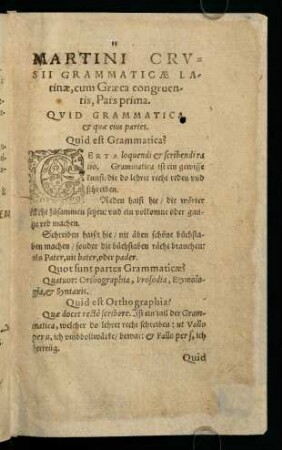 MARTINI CRV-
SII GRAMMATICÆ LA-
tinæ, cum Græca congruen-
tis, Pars prima.
QVID GRAMMATICA
& quæ eius partes.
Quid est Grammatica?
CERTA loquendi & scribendi ra
tio. Grammatica ist ein gewisse
kunst: die do lehret recht reden vnd
schreiben.
Reden haist hie / die wörter
recht zůsammen setzen: vnd ein volkomne oder gan-
tze red machen.
Schreiben haist hie / nit üben schöne bůchsta-
ben machen / sonder die bůchstaben recht brauchen:
als Pater, nit bater, oder pader.
Quot sunt partes Grammaticæ?
Quatuor: Orthographia, Prosodia, Etymolo-
gia, & Syntaxis.
Quid est Orthographia?
Quæ docet rectè scribere. Ist ein tail der Gram
matica, welcher do lehret recht schreiben: ut Vallo
per u, ich vmbbollwürke / bewar: & Fallo per f, ich
betrieg.
Quid